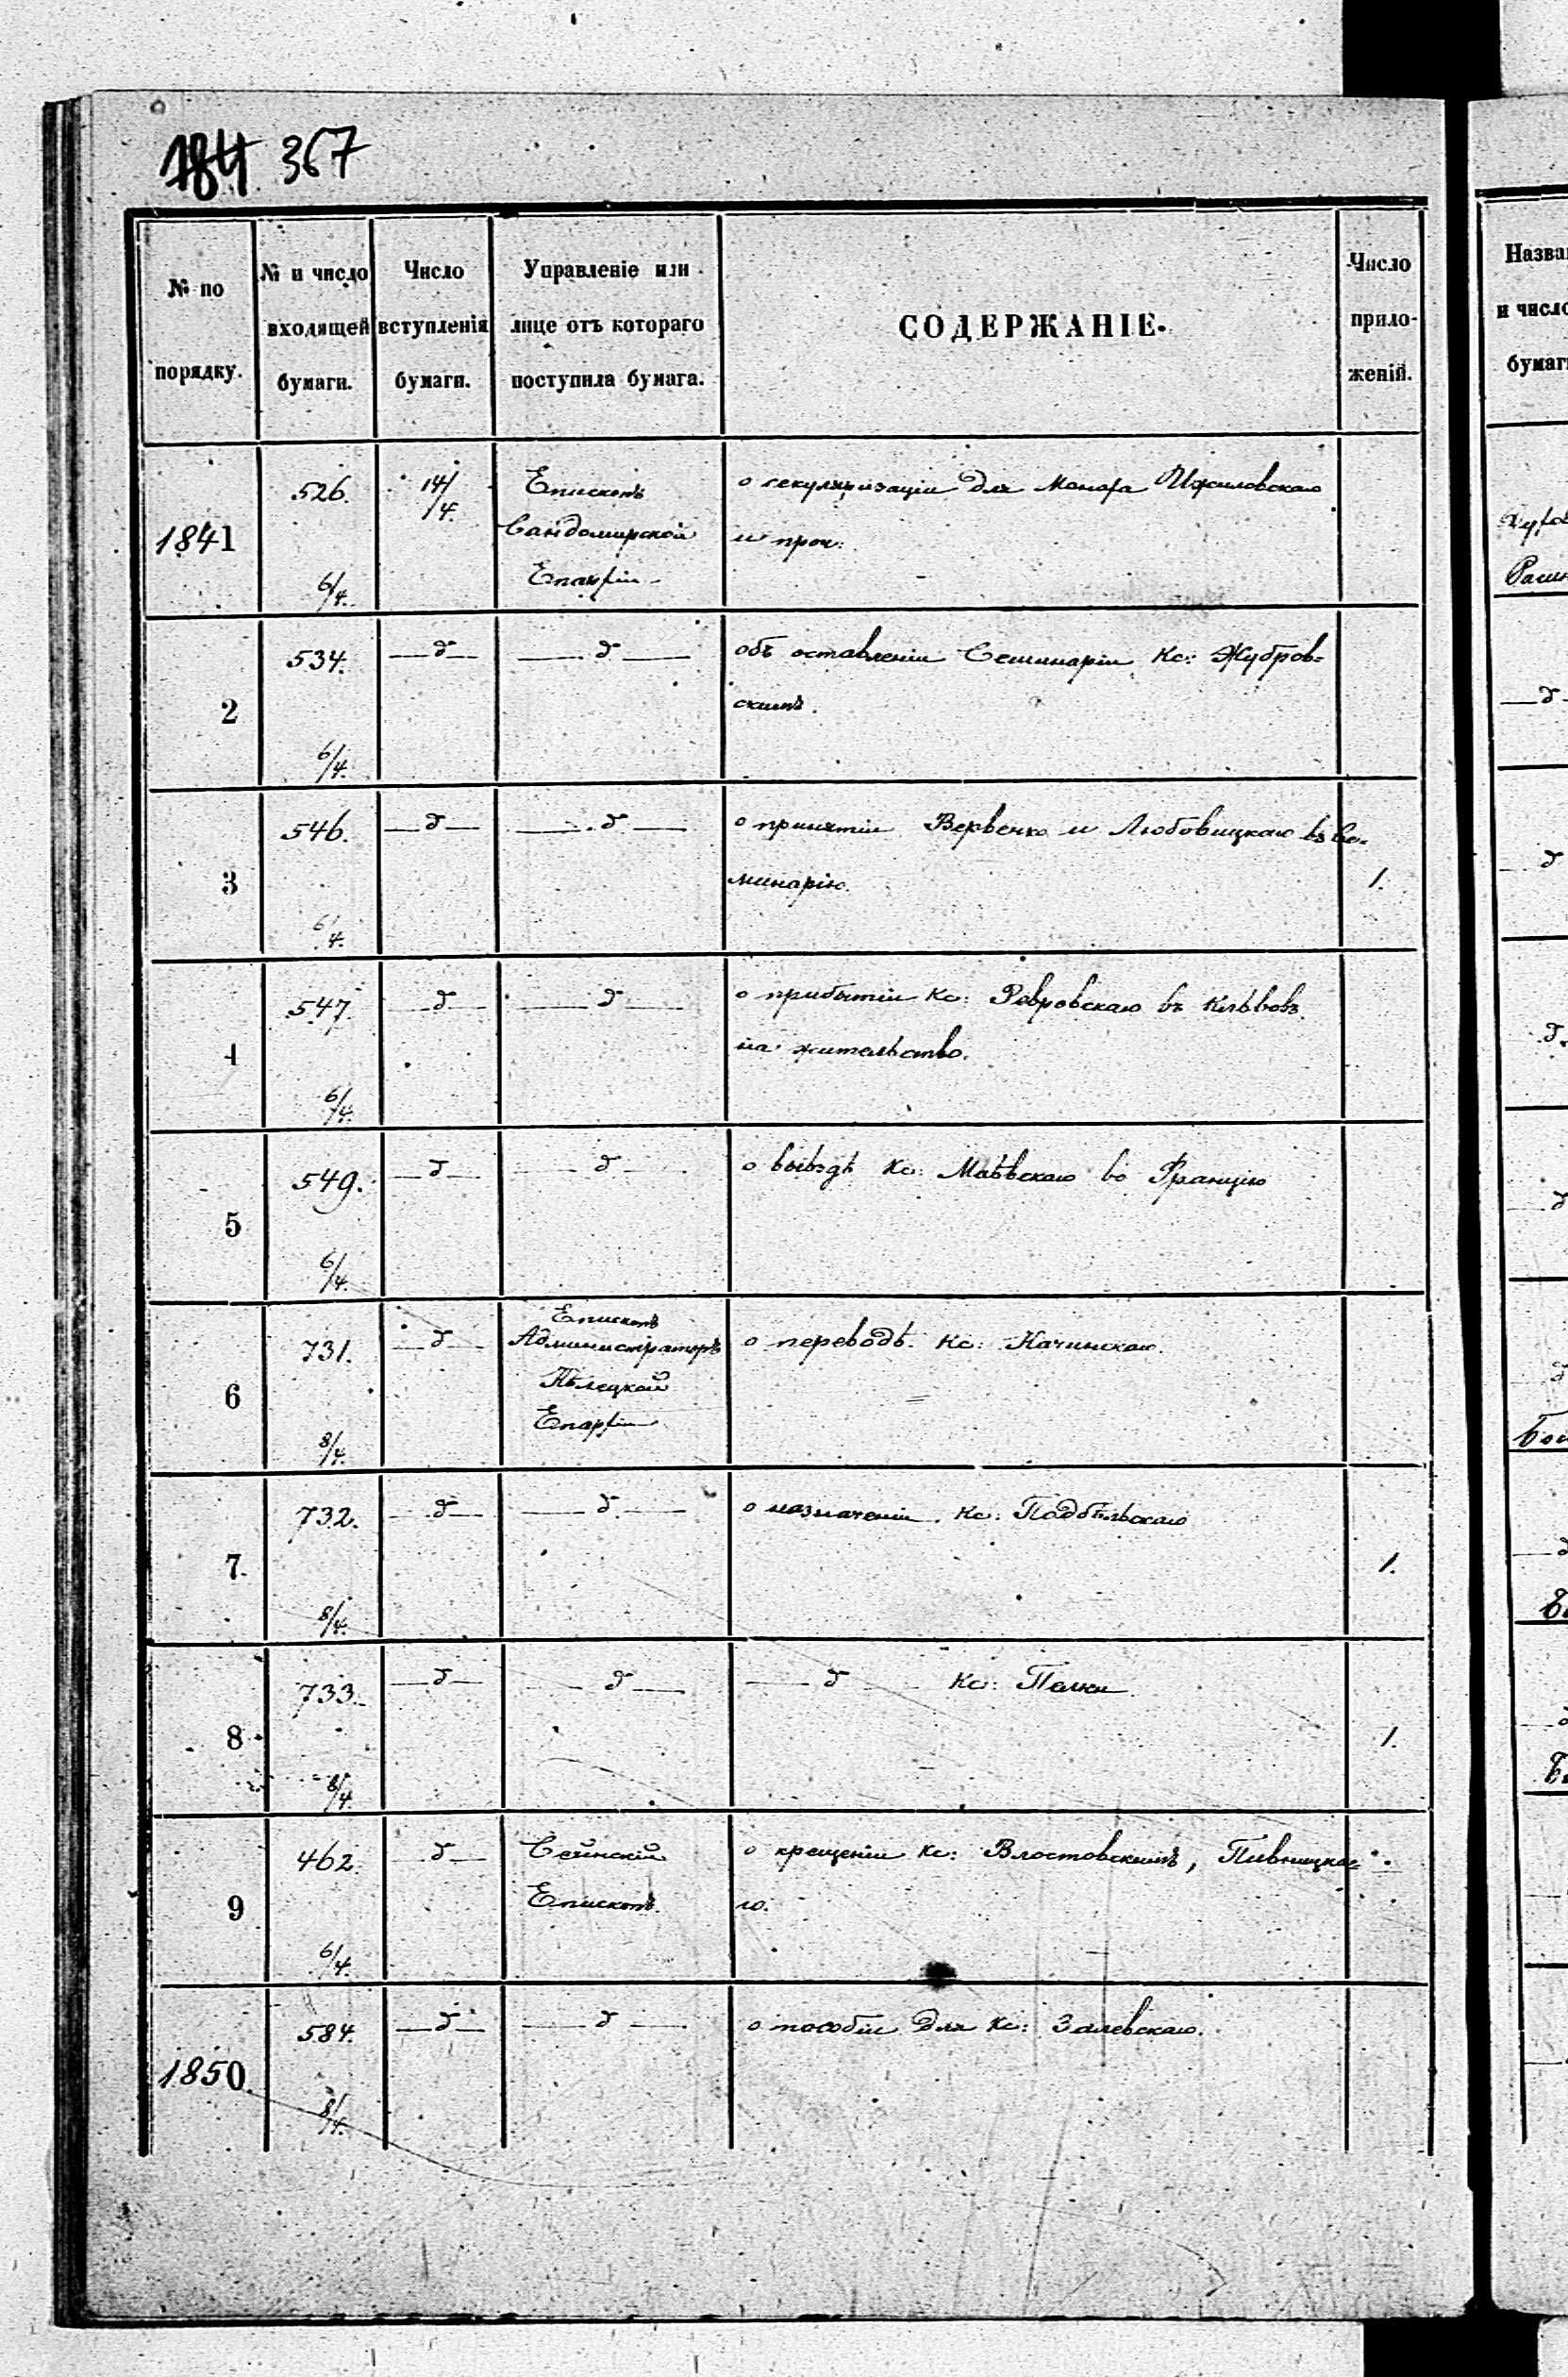 184 367
№ по порядку.
№ и число входящей бумаги.
Число вступленія бумаги.
Управленіе или лице отъ котораго поступила бумага.
СОДЕРЖАНІЕ.
Число прило-
женій.
1841 526. 6/4. 14/4. Епископъ Сандомирской Епархіи о секуляризаціи для монаха
и проч:
2 534. 6/4. —д— —д— объ оставленіи Семинаріи Кс: Жубров-
скимъ.
3 546. 6/4. —д— —д— о принятіи Вервенко и Любовицкаго въ Се-
минарію. 1.
4 547. 6/4. —д— —д— о прибытіи Кс: въ
на жительство.
5 549. 6/4. —д— —д— о выѣздѣ Кс: Маѣвскаго во Францію
6 731. 8/4. —д— Епископъ Администраторъ Епархіи о переводѣ Кс: Качинскаго.
7 732. 8/4. —д— —д— о назначеніи Кс: Подбѣльскаго 1.
8 733. 8/4. —д— —д— —д— Кс: 1.
9 462. 6/4. —д— Сейнскій Епископъ о крещеніи Кс: Влостовскимъ, Пивницка-
го.
1850 584. 8/4. —д— —д— о пособіи для Кс: Залевскаго.